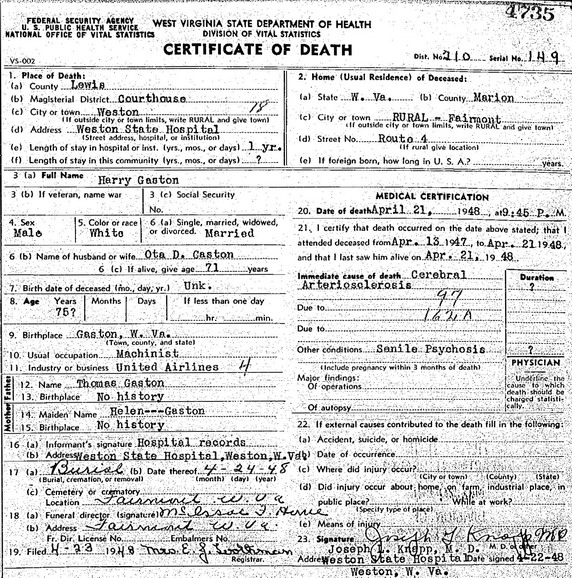 4735
FEDERAL SECURITY AGENCY
U. S. PUBLIC HEALTH SERVICE
NATIONAL OFFICE OF VITAL STATISTICS
WEST VIRGINIA STATE DEPARTMENT OF HEALTH
DIVISION OF VITAL STATISTICS
CERTIFICATE OF DEATH
VS-002
Dist. No. 210 Serial No. 149
1. Place of Death:
(a) County Lewis
(b) Magisterial District Courthouse
(c) City or town Weston 18
(If outside city or town limits, write RURAL and give town)
(d) Address Weston State Hospital
(Street address, hospital, or institution)
(e) Length of stay in hospital or inst. (yrs., mos., or days) 1 yr.
(f) Length of stay in this community (yrs., mos., or days) ?
2. Home (Usual Residence) of Deceased:
(a) State W. Va. (b) County Marion
(c) City or town RURAL - Fairmont
(If outside city or town limits, write RURAL and give town)
(d) Street No. Route 4
(If rural give location)
(e) If foreign born, how long in U. S. A.? years.
3 (a) Full Name Harry Gaston
3 (b) If veteran, name war
3 (c) Social Security
No.
4. Sex
Male
5. Color or race
White
6 (a) Single, married, widowed,
or divorced. Married
6 (b) Name of husband or wife Ota D. Gaston
6 (c) If alive, give age 71 years
7. Birth date of deceased (mo., day, yr.) Unk.
8. Age Years Months Days If less than one day
75? hr. min.
9. Birthplace Gaston, W. Va.
(Town, county, and state)
10. Usual occupation Machinist
11. Industry or business United Airlines 4
Father
12. Name Thomas Gaston
13. Birthplace No history
Mother
14. Maiden Name Helen---Gaston
15. Birthplace No history
16 (a) Informant's signature Hospital records
(b) Address Weston State Hospital, Weston, W.Va.
17 (a) Burial (b) Date thereof 4-24-48
(Burial, cremation, or removal) (month) (day) (year)
(c) Cemetery or crematory
Location Fairmont W. Va
18 (a) Funeral director (signature)
(b) Address Fairmont W. Va.
Fr. Dir. License No. Embalmers No.
19. Filed 4-23 1948 Mrs. E. J.
Registrar.
MEDICAL CERTIFICATION
20. Date of death April 21, 1948, at 9:45 P. M.
21. I certify that death occurred on the date above stated; that I
attended deceased from Apr. 13 1947, to Apr. 21 1948,
and that I last saw him alive on Apr. 21, 1948
Immediate cause of death Cerebral
Arteriosclerosis
97
Due to 162A
Due to
Other conditions Senile Psychosis
(Include pregnancy within 3 months of death)
Major findings:
Of operations
Of autopsy
Duration
?
?
PHYSICIAN
Underline
the cause
to which
death should
be charged
statisti-
cally.
22. If external causes contributed to the death fill in the following:
(a) Accident, suicide, or homicide
(b) Date of occurrence
(c) Where did injury occur?
(City or town) (County) (State)
(d) Did injury occur about home, on farm, industrial place, in
public place? While at work?
(Specify type of place)
(e) Means of injury
23. Signature Joseph G. Knapp MD
Joseph L. Knapp, M. D. M. D. or other
Address Weston State Hospital Date signed 4-22-48
Weston, W. Va.